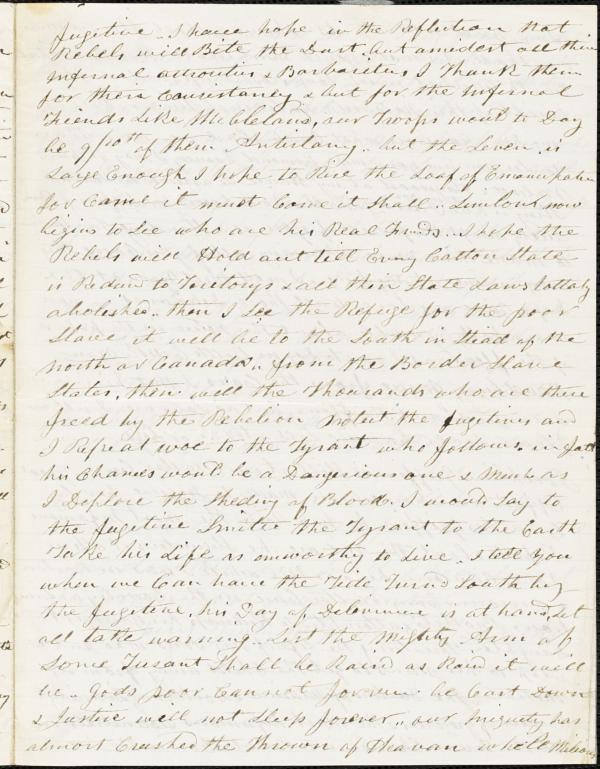 fugitive. I have hope in the Reflection that
Rebels will Bite the Dust. but amedest all thier
infernal attrocities & Barbarities, I Thank them
for their Consistancy & but for the infernal
Friends Like McClelans, our Troops would to Day
be 9/10ths of them Antislavry. but the Leven is
Large Enough I hope to Rise the Loaf of Emancipation
for Came it must Come it Shall.. Lincoln now
begins to See who are his Real Frinds.. I hope the
Rebels will Hold out till Evry Cotton State
is Reducd to Teritorys & all thier State Laws tottaly
abolished.. then I See the Refuge for the poor
Slave it will be to the South in Stead of the
north or Canada.. from the Border Slave
States, then will the Thousands who are there
freed by the Rebelion Protect the fugitives and
I Repeat woe to the Tyrant who follows. in fact
his Chances would be a Dangerious one & Much as
I Deplore the Sheding of Blood. I would Say to
the fugitive Smite the Tyrant to the Earth
Take his Life as unworthy to Live. I tell You
when we Can have the Tide Turnd South by
the fugitive. his Day of Deliverance is at hand, let
all take warning. Lest the Mighty Arm of
Some Tusant Shall be Raisd as Raisd it will
be.. Gods poor Cannot forever be Cast Down
& Justice will not Sleep forever.. our iniquity has
almost Crushed the Thrown of Pharaoh whole Milions